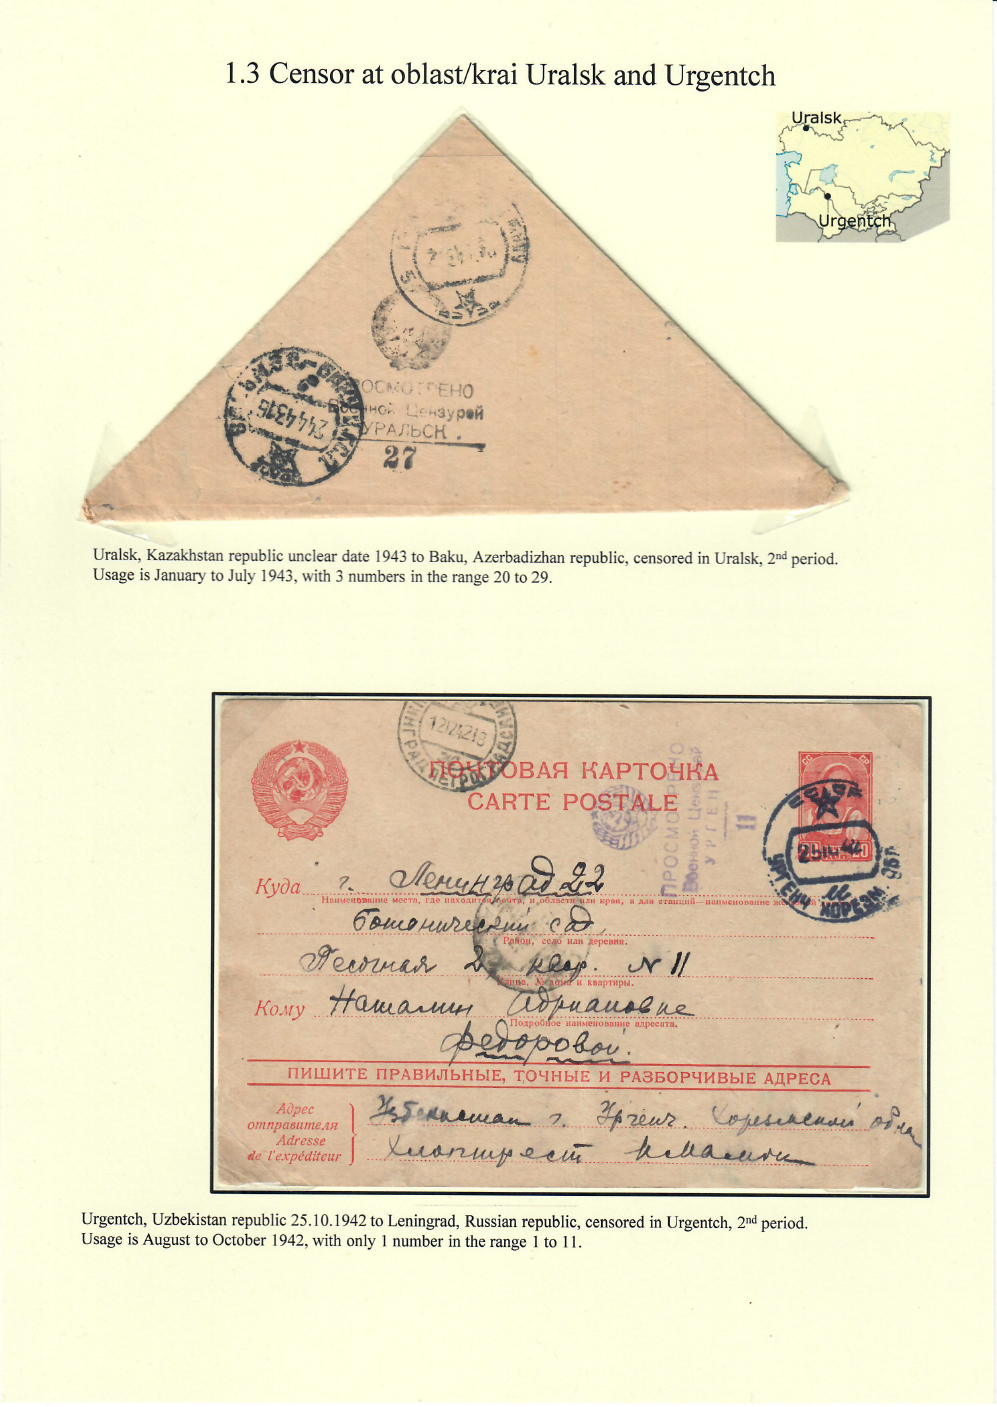 1.3 Censor at oblast/krai Uralsk and Urgentch
Uralsk
Urgentch
ПРОСМОТРЕНО
Военной Цензурой
УРАЛЬСК.
27
2444316
Uralsk, Kazakhstan republic unclear date 1943 to Baku, Azerbadizhan republic, censored in Uralsk, 2nd period.
Usage is January to July 1943, with 3 numbers in the range 20 to 29.
ПОЧТОВАЯ КАРТОЧКА
CARTE POSTALE
ПРОСМОТРЕНО
Военной Цензурой
УРГЕНЧ
11
УРГЕНЧ ХОРЕЗМ. ОБЛ.
Куда г. Ленинград 22
Наименование места, где находится почта, и области или края, а для станций—наименование
Ботанический сад
Район, село или деревня.
Песочная 2, квар. N 11
Улица, № дома и квартиры.
Кому Наталии Адриановне
Подробное наименование адресата.
Федоровой.
ПИШИТЕ ПРАВИЛЬНЫЕ, ТОЧНЫЕ И РАЗБОРЧИВЫЕ АДРЕСА
Адрес
отправителя
Adresse
de l'expéditeur
Узбекистан г. Ургенч. Хорезмской
Хлоптрест
Urgentch, Uzbekistan republic 25.10.1942 to Leningrad, Russian republic, censored in Urgentch, 2nd period.
Usage is August to October 1942, with only 1 number in the range 1 to 11.